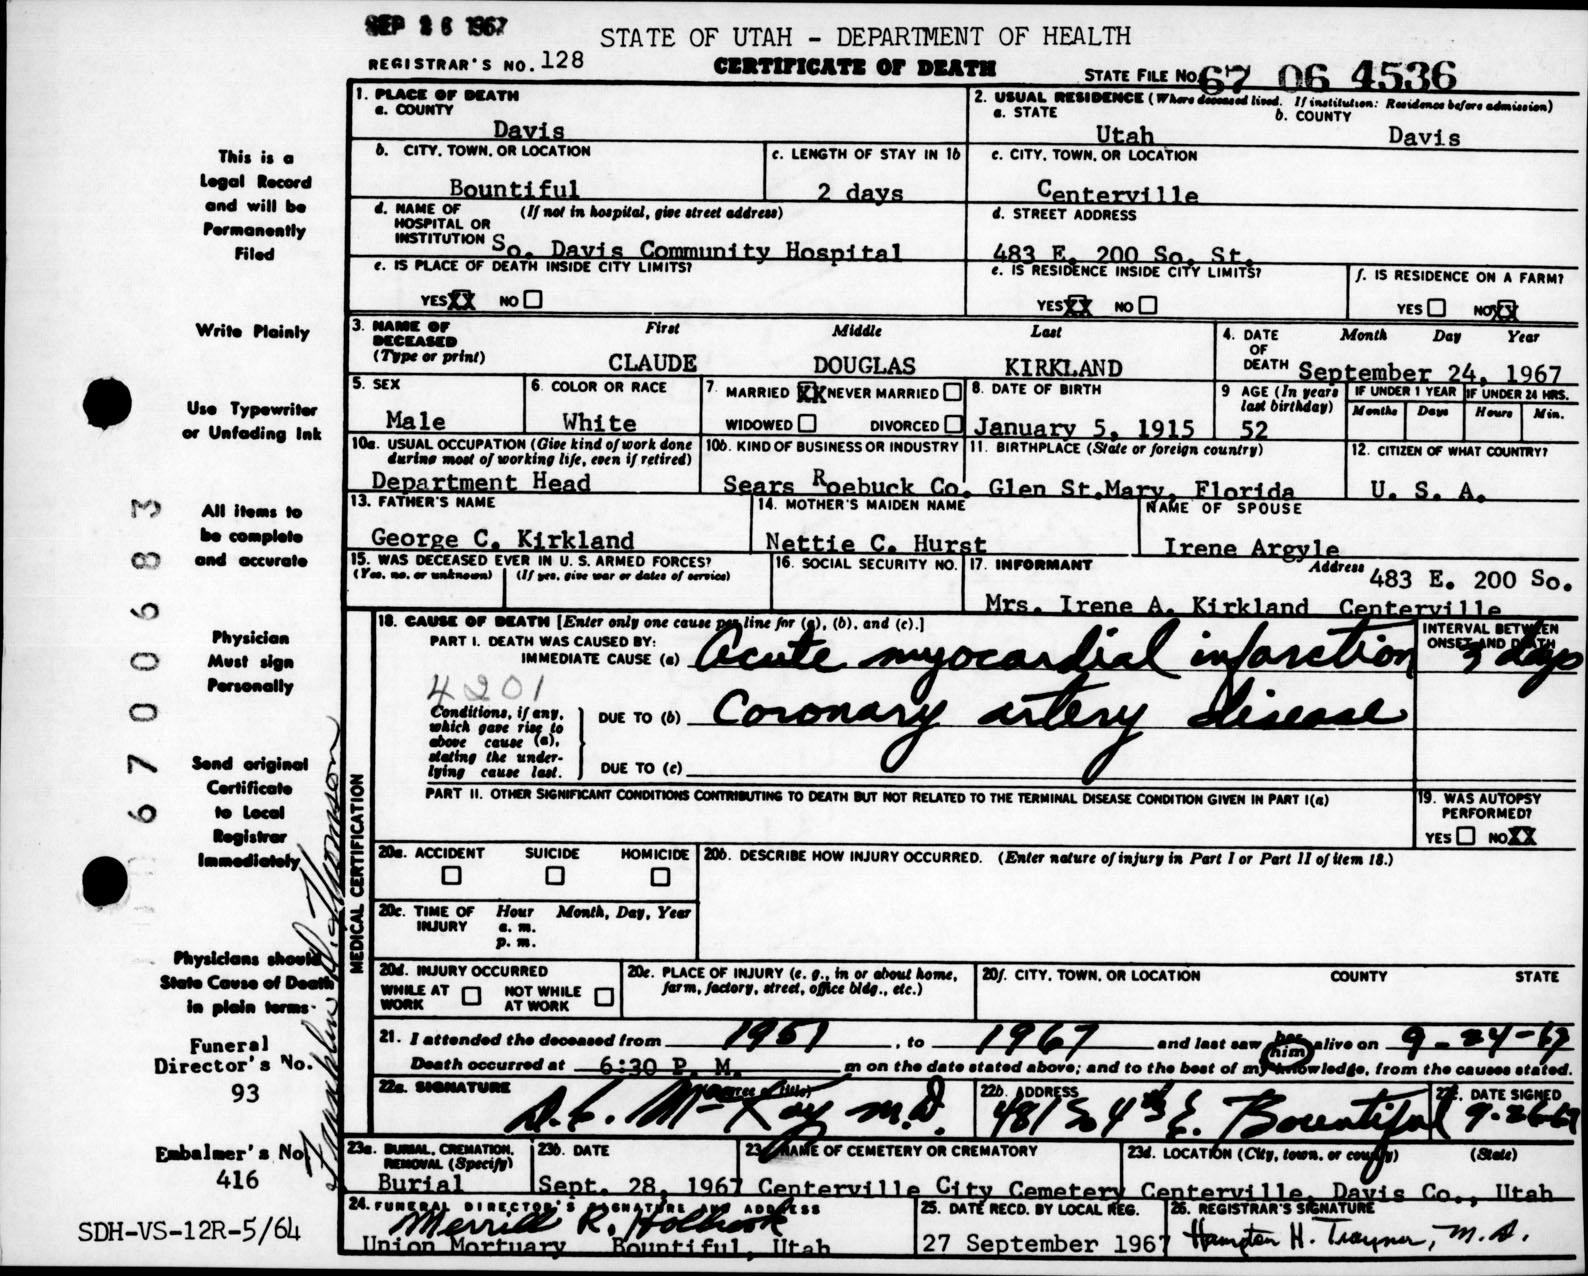 SEP 26 1967
STATE OF UTAH - DEPARTMENT OF HEALTH
REGISTRAR'S NO. 128
CERTIFICATE OF DEATH
STATE FILE NO. 67 06 4536
1. PLACE OF DEATH
a. COUNTY
Davis
2. USUAL RESIDENCE (Where deceased lived. If institution: Residence before admission)
a. STATE
b. COUNTY
Utah
Davis
b. CITY, TOWN, OR LOCATION
Bountiful
c. LENGTH OF STAY IN 1b
2 days
c. CITY, TOWN, OR LOCATION
Centerville
d. NAME OF HOSPITAL OR INSTITUTION
(If not in hospital, give street address)
So. Davis Community Hospital
d. STREET ADDRESS
483 E. 200 So. St.
e. IS PLACE OF DEATH INSIDE CITY LIMITS?
YES XX NO
e. IS RESIDENCE INSIDE CITY LIMITS?
YES XX NO
f. IS RESIDENCE ON A FARM?
YES NO XX
3. NAME OF DECEASED
(Type or print)
First Middle Last
CLAUDE DOUGLAS KIRKLAND
4. DATE OF DEATH
Month Day Year
September 24, 1967
5. SEX
Male
6. COLOR OR RACE
White
7. MARRIED XX NEVER MARRIED
WIDOWED DIVORCED
8. DATE OF BIRTH
January 5, 1915
9 AGE (In years last birthday)
52
IF UNDER 1 YEAR
Months Days
IF UNDER 24 HRS.
Hours Min.
10a. USUAL OCCUPATION (Give kind of work done during most of working life, even if retired)
Department Head
10b. KIND OF BUSINESS OR INDUSTRY
Sears Roebuck Co.
11. BIRTHPLACE (State or foreign country)
Glen St.Mary, Florida
12. CITIZEN OF WHAT COUNTRY?
U. S. A.
13. FATHER'S NAME
George C. Kirkland
14. MOTHER'S MAIDEN NAME
Nettie C. Hurst
NAME OF SPOUSE
Irene Argyle
15. WAS DECEASED EVER IN U. S. ARMED FORCES?
(Yes, no, or unknown) (If yes, give war or dates of service)
16. SOCIAL SECURITY NO.
17. INFORMANT
Address
483 E. 200 So.
Mrs. Irene A. Kirkland Centerville
MEDICAL CERTIFICATION
18. CAUSE OF DEATH [Enter only one cause per line for (a), (b), and (c).]
PART I. DEATH WAS CAUSED BY:
IMMEDIATE CAUSE (a) Acute myocardial infarction
INTERVAL BETWEEN ONSET AND DEATH
days
4201
Conditions, if any, which gave rise to above cause (a), stating the underlying cause last.
DUE TO (b) Coronary artery disease
DUE TO (c)
PART II. OTHER SIGNIFICANT CONDITIONS CONTRIBUTING TO DEATH BUT NOT RELATED TO THE TERMINAL DISEASE CONDITION GIVEN IN PART I(a)
19. WAS AUTOPSY PERFORMED?
YES NO XX
20a. ACCIDENT SUICIDE HOMICIDE
20b. DESCRIBE HOW INJURY OCCURRED. (Enter nature of injury in Part I or Part II of item 18.)
20c. TIME OF INJURY
Hour Month, Day, Year
a. m.
p. m.
20d. INJURY OCCURRED
WHILE AT WORK
NOT WHILE AT WORK
20e. PLACE OF INJURY (e. g., in or about home, farm, factory, street, office bldg., etc.)
20f. CITY, TOWN, OR LOCATION COUNTY STATE
21. I attended the deceased from 1951, to 1967 and last saw her him alive on 9-24-67
Death occurred at 6:30 P. M. m on the date stated above; and to the best of my knowledge, from the causes stated.
22a. SIGNATURE
(Degree or title)
McKay M.D.
22b. ADDRESS
481 So 4th E. Bountiful
22c. DATE SIGNED
9-26-67
23a. BURIAL, CREMATION, REMOVAL (Specify)
Burial
23b. DATE
Sept. 28, 1967
23c NAME OF CEMETERY OR CREMATORY
Centerville City Cemetery
23d. LOCATION (City, town, or county) (State)
Centerville, Davis Co., Utah
24. FUNERAL DIRECTOR'S SIGNATURE AND ADDRESS
Merrill R. Holbrook
Union Mortuary Bountiful, Utah
25. DATE RECD. BY LOCAL REG.
27 September 1967
26. REGISTRAR'S SIGNATURE
Hampton H. Trayner, M.D.
This is a
Legal Record
and will be
Permanently
Filed
Write Plainly
Use Typewriter
or Unfading Ink
All items to
be complete
and accurate
Physician
Must sign
Personally
Send original
Certificate
to Local
Registrar
Immediately
Physicians should
State Cause of Death
in plain terms.
Funeral
Director's No.
93
Embalmer's No
416
SDH-VS-12R-5/64
67 00683
Franklin D. Thomson